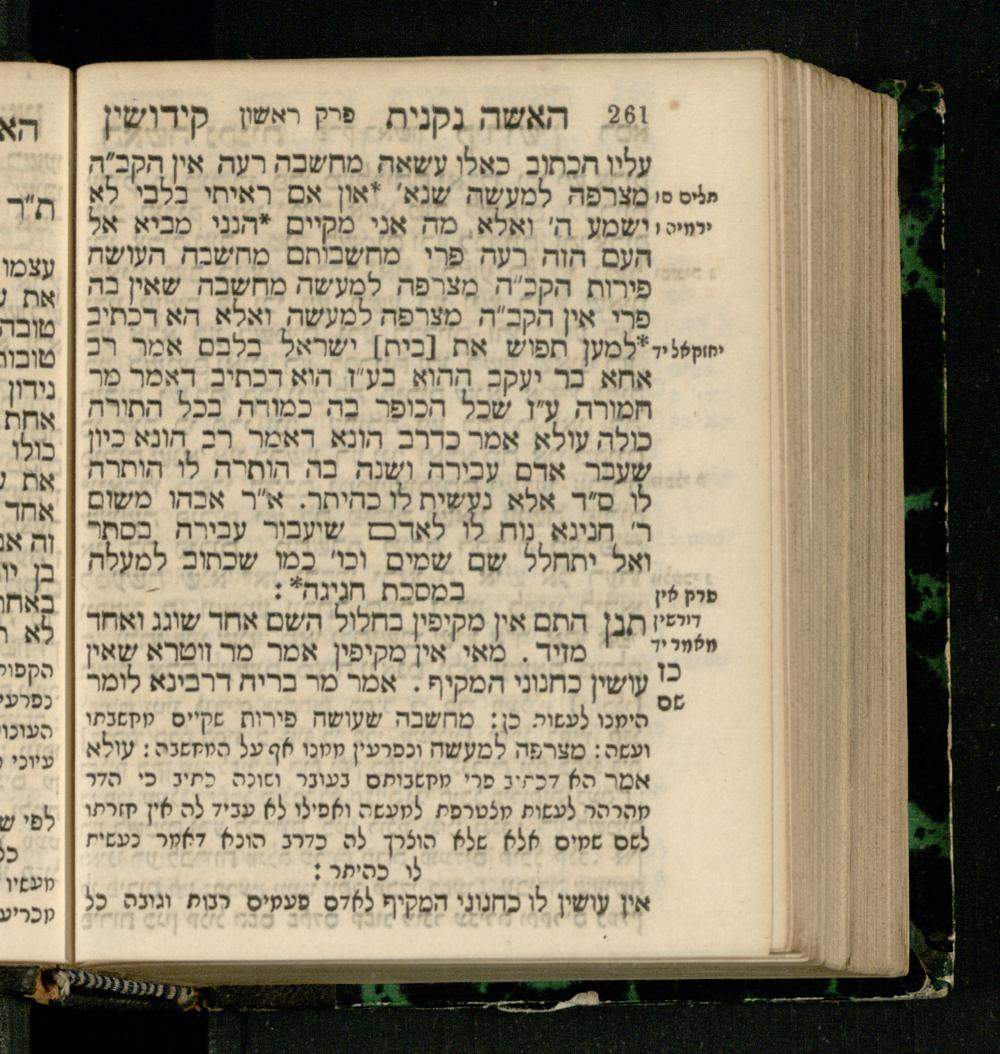 261 האשה נקנית פרק ראשון קידושין
עליו הכתוב כאלו עשאה מחשבה רעה אין הקב"ה
תלים סו מצרפה למעשה שנא' *און אם ראיתי בלבי לא
ירמיה ו ישמע ה' ואלא מה אני מקיים *הנני מביא אל
העם הזה רעה פרי מחשבותם מחשבה העושה
פירות הקב"ה מצרפה למעשה מחשבה שאין בה
פרי אין הקב"ה מצרפה למעשה ואלא הא דכתיב
יחזקאל יד *למען תפוש את [בית] ישראל בלבם אמר רב
אחא בר יעקב ההוא בע"ז הוא דכתיב דאמר מר
חמורה ע"ז שכל הכופר בה כמודה בכל התורה
כולה עולא אמר כדרב הונא דאמר רב הונא כיון
שעבר אדם עבירה ושנה בה הותרה לו הותרה
לו ס"ד אלא נעשית לו כהיתר. א"ר אבהו משום
ר' חנינא נוח לו לאדם שיעבור עבירה בסתר
ואל יתחלל שם שמים וכו' כמו שכתוב למעלה
במסכת חגיגה*:
פרק אין
דורשין
מאמר יד
תנן התם אין מקיפין בחלול השם אחד שוגג ואחד
מזיד. מאי אין מקיפין אמר מר זוטרא שאין
כז
עושין כחנוני המקיף. אמר מר בריה דרבינא לומר
שם
הימנו לעשות כן: מחשבה שעושה פירות שקיים מחשבתו
ועשה: מצרפה למעשה ונפרעין ממנו אף על המחשבה: עולא
אמר הא דכתיב פרי מחשבותם בעובר ושונה כתיב כי הדר
מהרהר לעשות מצטרפת למעשה ואפילו לא עביד לה אין חזרתו
לשם שמים אלא שלא הוצרך לה כדרב הונא דאמר נעשית
לו כהיתר:
אין עושין לו כחנוני המקיף לאדם פעמים רבות וגובה כל
הא
ת"ר
עצמו
את ע
טובה
טובות
נידון
אחת
כולו
את ע
אחד
זה א
בן יו
באחר
לא ר
הקפות
נפרעי
העוכו
עיוני
לפי ש
כל
מעשיו
מכריע